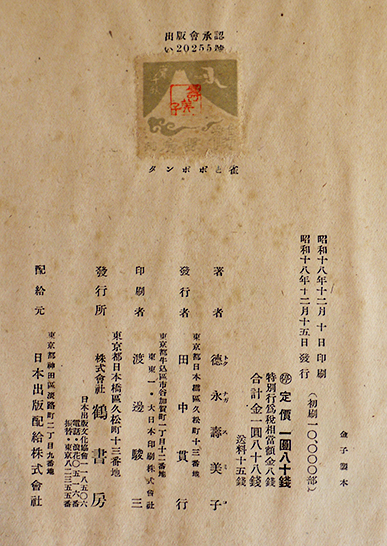 認承會版出
號20255い
雀とポポンタ
金子製本
昭和十八年十二月十日印刷
昭和十八年十二月十五日發行
(初刷一〇〇〇〇部)
定價一圓八十錢
特別行爲稅相當額金八錢
合計金一圓八十八錢
送料十五錢
著者 德永壽美子
トク ナガ ス ミ コ
東京都日本橋區久松町十三番地
發行者 田中貫行
東京都牛込區市谷加賀町一丁目十二番地
東東一・大日本印刷株式會社
印刷者 渡邊駿三
東京都日本橋區久松町十三番地
發行所 株式會社 鶴書房
日本出版文化協會一一八五〇六
電話・浪花〇五二六番
振替・東京八二三五五番
東京都神田區淡路町二丁目九番地
配給元 日本出版配給株式會社